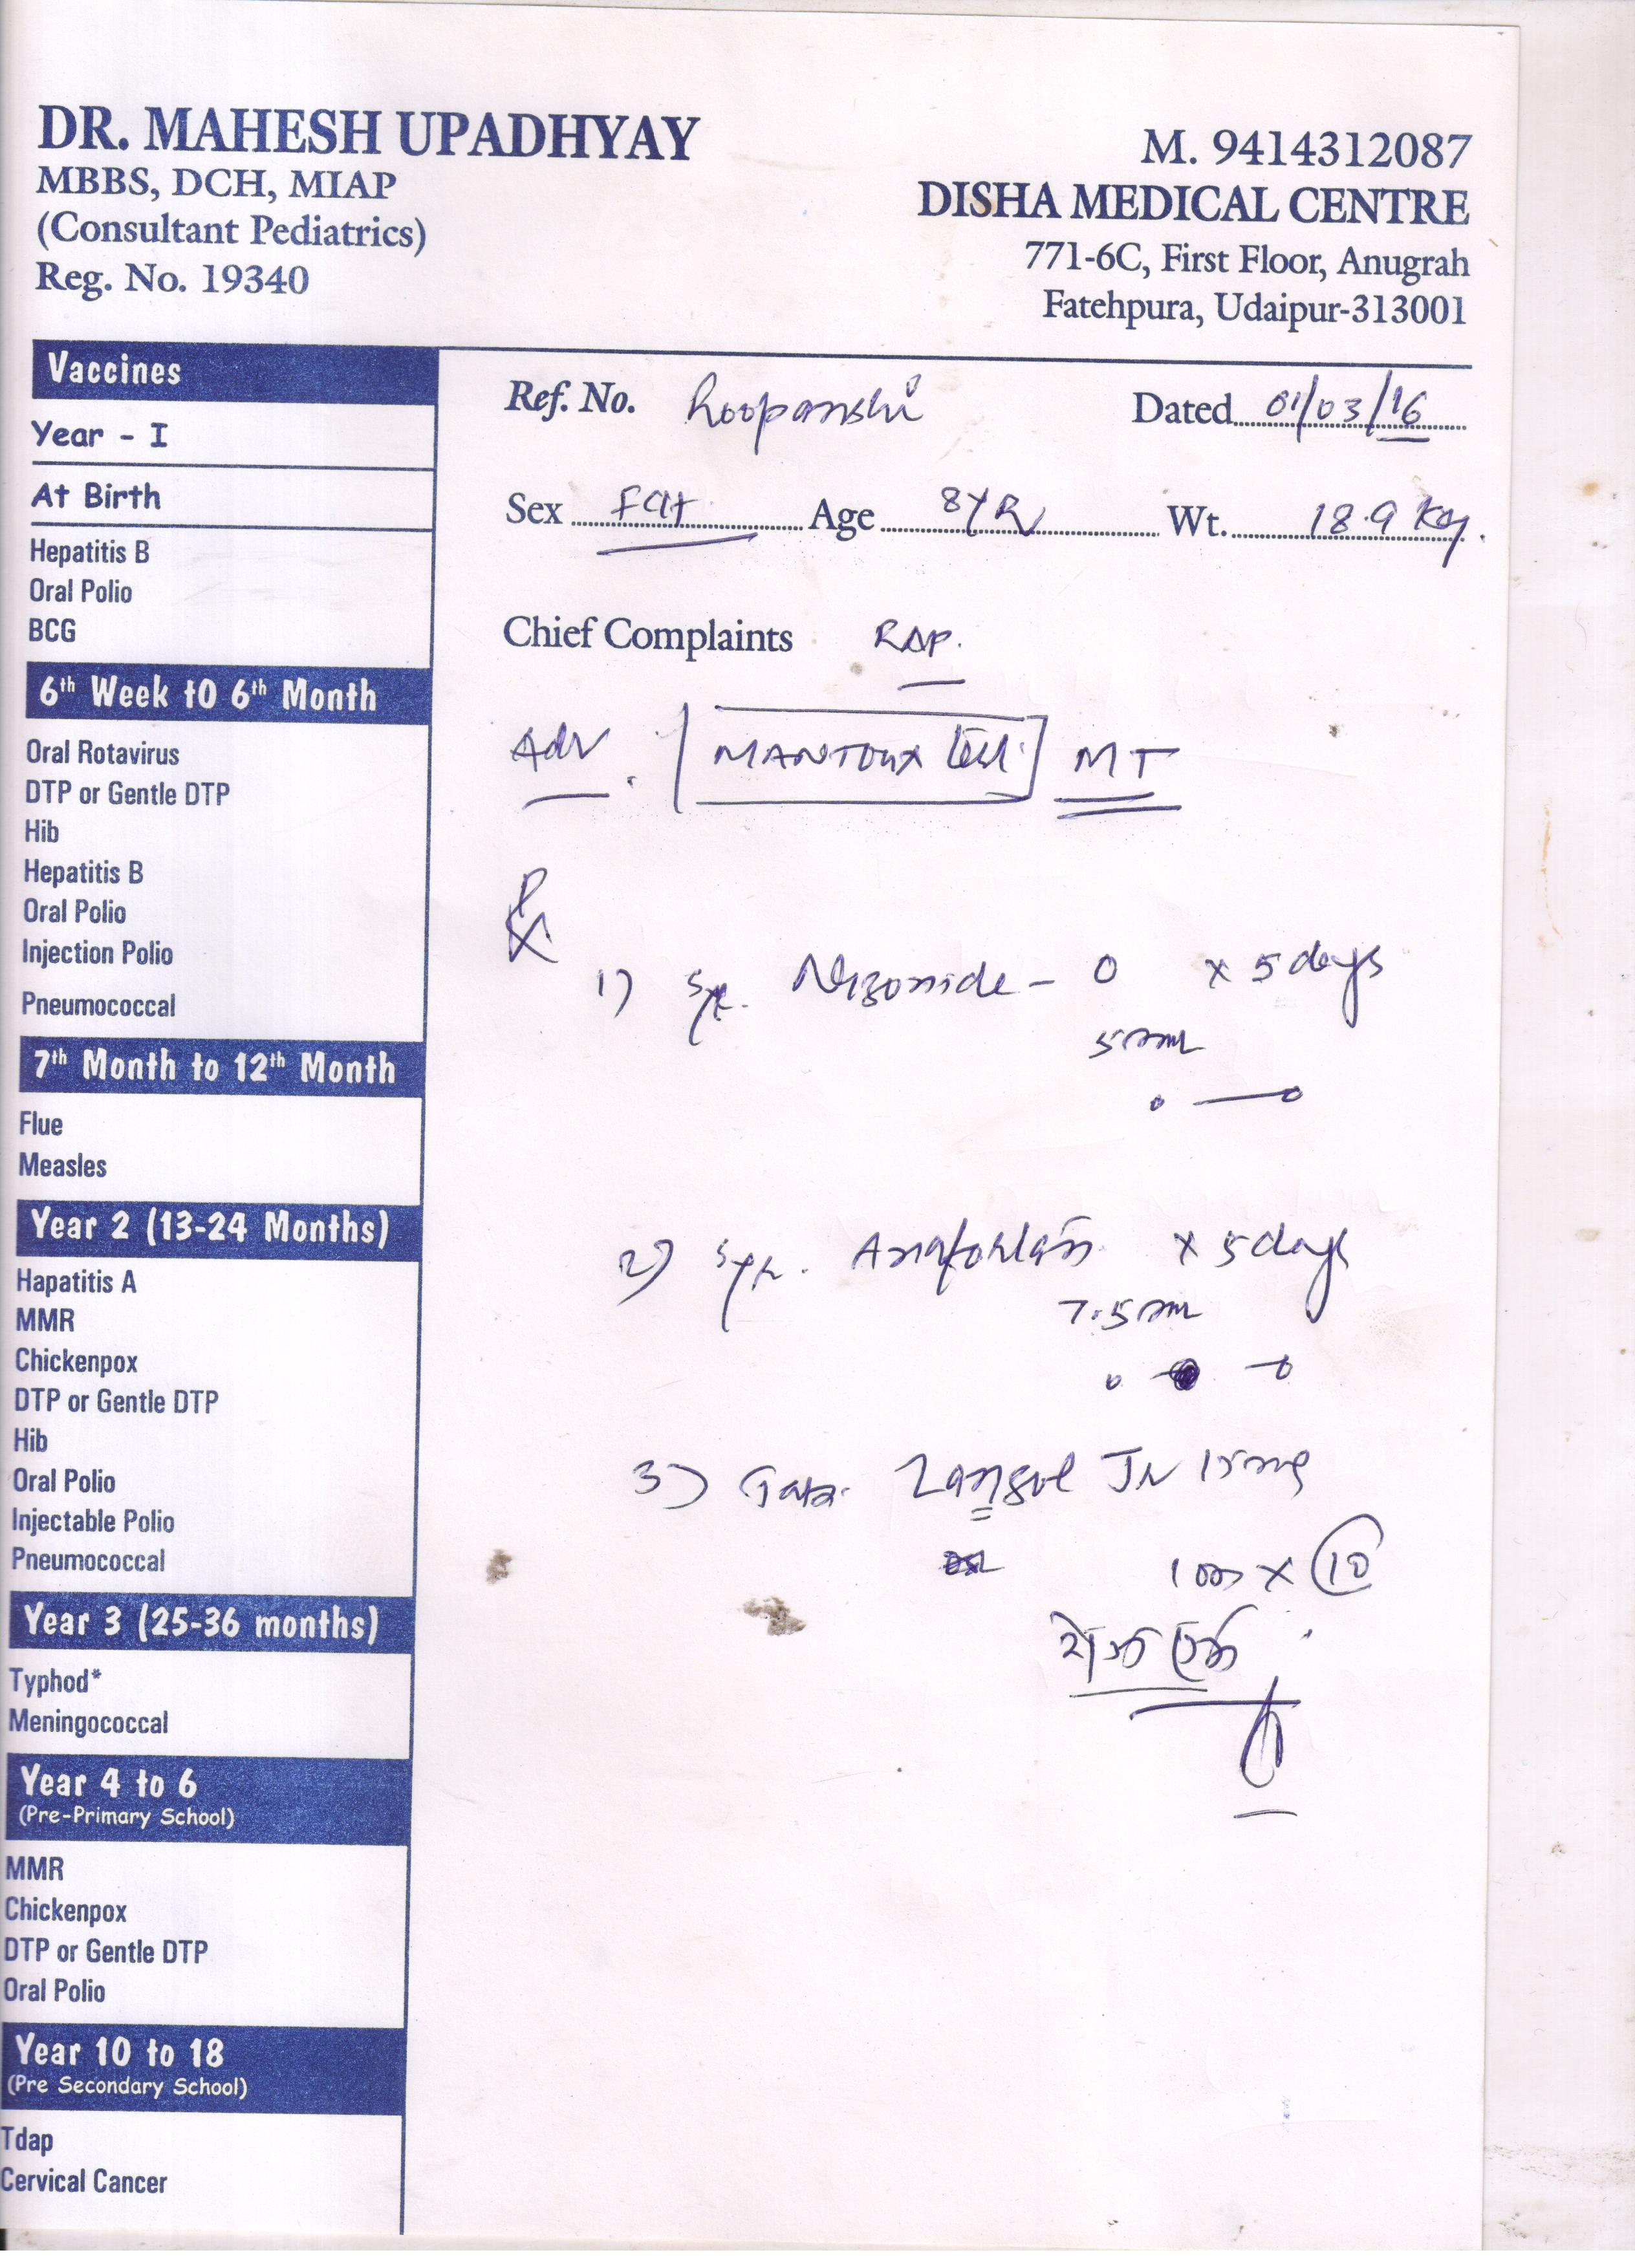 DR. MAHESH UPADHYAY
MBBS, DCH, MIAP
(Consultant Pediatrics)
Reg. No. 19340
M. 9414312087
DISHA MEDICAL CENTRE
771-6C, First Floor, Anugrah
Fatehpura, Udaipur-313001
Vaccines
Year - I
At Birth
Hepatitis B
Oral Polio
BCG
6th Week tO 6th Month
Oral Rotavirus
DTP or Gentle DTP
Hib
Hepatitis B
Oral Polio
Injection Polio
Pneumococcal
7th Month to 12th Month
Flue
Measles
Year 2 (13-24 Months)
Hapatitis A
MMR
Chickenpox
DTP or Gentle DTP
Hib
Oral Polio
Injectable Polio
Pneumococcal
Year 3 (25-36 months)
Typhod*
Meningococcal
Year 4 to 6
(Pre-Primary School)
MMR
Chickenpox
DTP or Gentle DTP
Oral Polio
Year 10 to 18
(Pre Secondary School)
Tdap
Cervical Cancer
Ref. No. Roopanshi Dated 01/03/16
Sex FCH Age 8YR Wt. 18.9 Kg.
Chief Complaints RAP.
Adv. [MANTOUX test] MT
Rx
1) Syr. Nizonide - 0 x 5 days
5 ml
2) Syr. x 5 days
7.5 ml
3) Tab. JR 15 mg
x 10